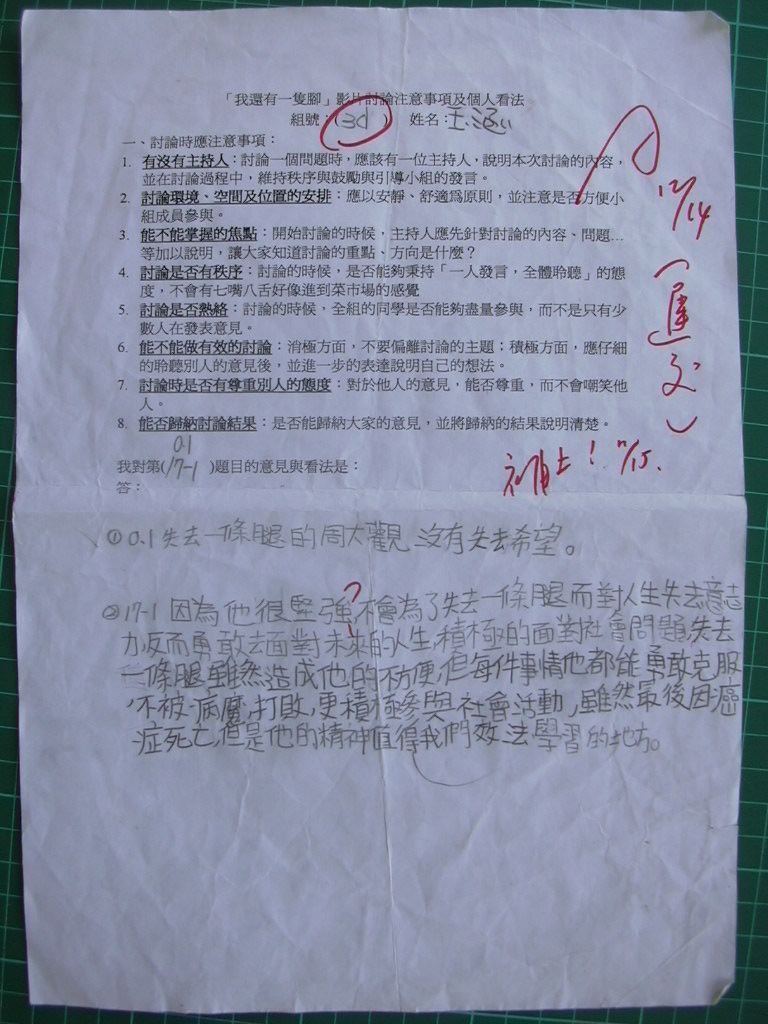 「我還有一隻腳」影片討論注意事項及個人看法
組號：( 3d ) 姓名：王涵
一、討論時應注意事項：
1. 有沒有主持人：討論一個問題時，應該有一位主持人，說明本次討論的內容，
並在討論過程中，維持秩序與鼓勵與引導小組的發言。
2. 討論環境、空間及位置的安排：應以安靜、舒適爲原則，並注意是否方便小
組成員參與。
3. 能不能掌握的焦點：開始討論的時候，主持人應先針對討論的內容、問題…
等加以說明，讓大家知道討論的重點、方向是什麼？
4. 討論是否有秩序：討論的時候，是否能夠秉持「一人發言，全體聆聽」的態
度，不會有七嘴八舌好像進到菜市場的感覺
5. 討論是否熱絡：討論的時候，全組的同學是否能夠盡量參與，而不是只有少
數人在發表意見。
6. 能不能做有效的討論：消極方面，不要偏離討論的主題；積極方面，應仔細
的聆聽別人的意見後，並進一步的表達說明自己的想法。
7. 討論時是否有尊重別人的態度：對於他人的意見，能否尊重，而不會嘲笑他
人。
8. 能否歸納討論結果：是否能歸納大家的意見，並將歸納的結果說明清楚。
0.1
我對第(17-1 )題目的意見與看法是：
答：
A
12/14
(遲交)
補上！12/15.
①0.1失去一條腿的周大觀沒有失去希望。
②17-1 因為他很堅強,不會為了失去一條腿而對人生失去意志
力反而勇敢去面對未來的人生,積極的面對社會問題,失去
一條腿雖然造成他的不方便,但每件事情他都能勇敢克服
不被病魔,打敗,更積極參與社會活動,雖然最後因癌
症死亡,但是他的精神值得我們效法學習的地方。